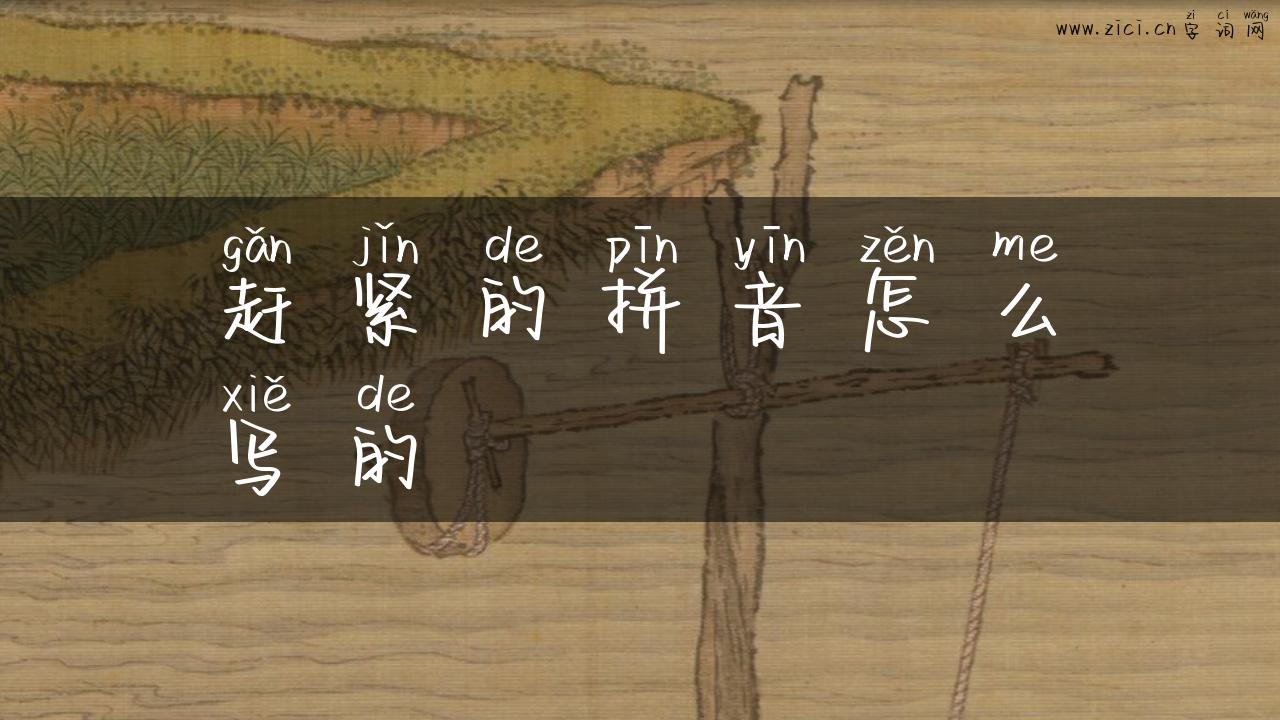 zì cí wǎng
www.zici.cn 字词网
gǎn jǐn de pīn yīn zěn me
赶紧的拼音怎么
xiě de
写的